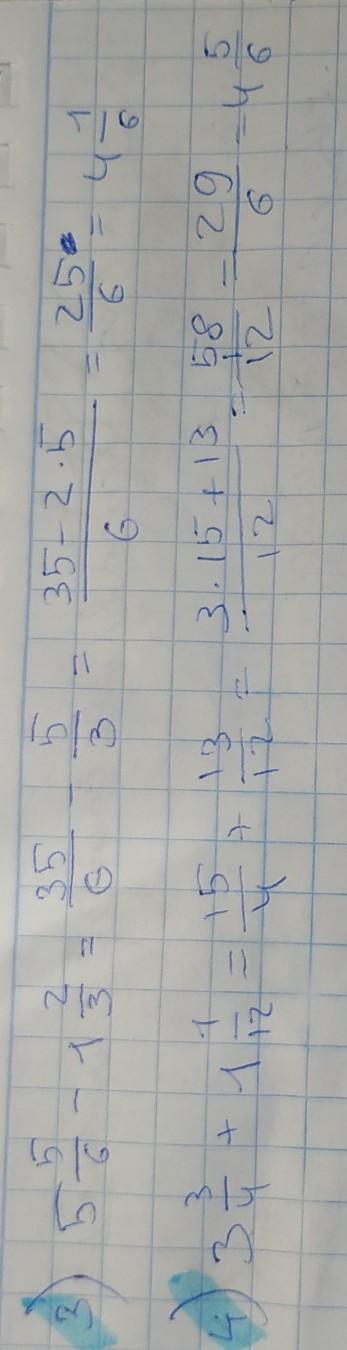 3) 5 5/6 - 1 2/3 = 35/6 - 5/3 = (35 - 2·5)/6 = 25/6 = 4 1/6
4) 3 3/4 + 1 1/12 = 15/4 + 13/12 = (3·15 + 13)/12 = 58/12 = 29/6 = 4 5/6